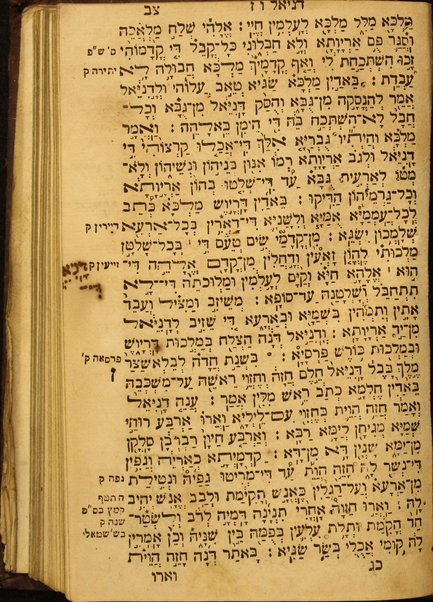 דניאל ו ז צב
מַלְכָּא מַלִּל מַלְכָּא לְעָלְמִין חֱיִי: אֱלָהִי שְׁלַח מַלְאֲכֵהּ
וּסֲגַר פֻּם אַרְיָוָתָא וְלָא חַבְּלוּנִי כָּל־קֳבֵל דִּי קָדָמוֹהִי
זָכוּ הִשְׁתְּכַחַת לִי וְאַף קָדָמָיךְ מַלְכָּא חֲבוּלָה לָא
עַבְדֵת: בֵּאדַיִן מַלְכָּא שַׂגִּיא טְאֵב עֲלוֹהִי וּלְדָנִיֵּאל
אֲמַר לְהַנְסָקָה מִן־גֻּבָּא וְהֻסַּק דָּנִיֵּאל מִן־גֻּבָּא וְכָל־
חֲבָל לָא־הִשְׁתְּכַח בֵּהּ דִּי הֵימִן בֵּאלָהֵהּ: וַאֲמַר
מַלְכָּא וְהַיְתִיו גֻּבְרַיָּא אִלֵּךְ דִּי־אֲכַלוּ קַרְצוֹהִי דִּי
דָנִיֵּאל וּלְגֹב אַרְיָוָתָא רְמוֹ אִנּוּן בְּנֵיהוֹן וּנְשֵׁיהוֹן וְלָא־
מְטוֹ לְאַרְעִית גֻּבָּא עַד דִּי־שְׁלִטוּ בְהוֹן אַרְיָוָתָא
וְכָל־גַּרְמֵיהוֹן הַדִּקוּ: בֵּאדַיִן דָּרְיָוֶשׁ מַלְכָּא כְּתַב
לְכָל־עַמְמַיָּא אֻמַּיָּא וְלִשָּׁנַיָּא דִּי־דָאֲרִין בְּכָל־אַרְעָא
שְׁלָמְכוֹן יִשְׂגֵּא: מִן־קֳדָמַי שִׂים טְעֵם דִּי בְּכָל־שָׁלְטָן
מַלְכוּתִי לֶהֱוֹן זָאֲעִין וְדָחֲלִין מִן־קֳדָם אֱלָהֵהּ דִּי
הוּא אֱלָהָא חַיָּא וְקַיָּם לְעָלְמִין וּמַלְכוּתֵהּ דִּי־לָא
תִתְחַבַּל וְשָׁלְטָנֵהּ עַד־סוֹפָא: מְשֵׁיזִב וּמַצִּל וְעָבֵד
אָתִין וְתִמְהִין בִּשְׁמַיָּא וּבְאַרְעָא דִּי שֵׁיזִב לְדָנִיֵּאל
מִן־יַד אַרְיָוָתָא: וְדָנִיֵּאל דְּנָה הַצְלַח בְּמַלְכוּת דָּרְיָוֶשׁ
וּבְמַלְכוּת כּוֹרֶשׁ פָּרְסָיָא: בִּשְׁנַת חֲדָה לְבֵלְאשַׁצַּר
מֶלֶךְ בָּבֶל דָּנִיֵּאל חֵלֶם חֲזָה וְחֶזְוֵי רֵאשֵׁהּ עַל־מִשְׁכְּבֵהּ
בֵּאדַיִן חֶלְמָא כְתַב רֵאשׁ מִלִּין אֲמַר: עָנֵה דָנִיֵּאל
וְאָמַר חָזֵה הֲוֵית בְּחֶזְוִי עִם־לֵילְיָא וַאֲרוּ אַרְבַּע רוּחֵי
שְׁמַיָּא מְגִיחָן לְיַמָּא רַבָּא: וְאַרְבַּע חֵיוָן רַבְרְבָן סָלְקָן
מִן־יַמָּא שָׁנְיָן דָּא מִן־דָּא: קַדְמָיְתָא כְאַרְיֵה וְגַפִּין
דִּי־נְשַׁר לַהּ חָזֵה הֲוֵית עַד דִּי־מְּרִיטוּ גַפַּיהּ וּנְטִילַת
מִן־אַרְעָא וְעַל־רַגְלַיִן כֶּאֱנָשׁ הֳקִימַת וּלְבַב אֱנָשׁ יְהִיב
לַהּ: וַאֲרוּ חֵיוָה אָחֳרִי תִנְיָנָה דָּמְיָה לְדֹב וְלִשְׂטַר־
חַד הֳקִמַת וּתְלָת עִלְעִין בְּפֻמַּהּ בֵּין שִׁנַּיהּ וְכֵן אָמְרִין
לַהּ קוּמִי אֲכֻלִי בְּשַׂר שַׂגִּיא: בָּאתַר דְּנָה חָזֵה הֲוֵית
כג וארו
יתירה ק
דיירין ק
זייעין ק
פרסאה ק'
ז
גפה ק
שנה ק